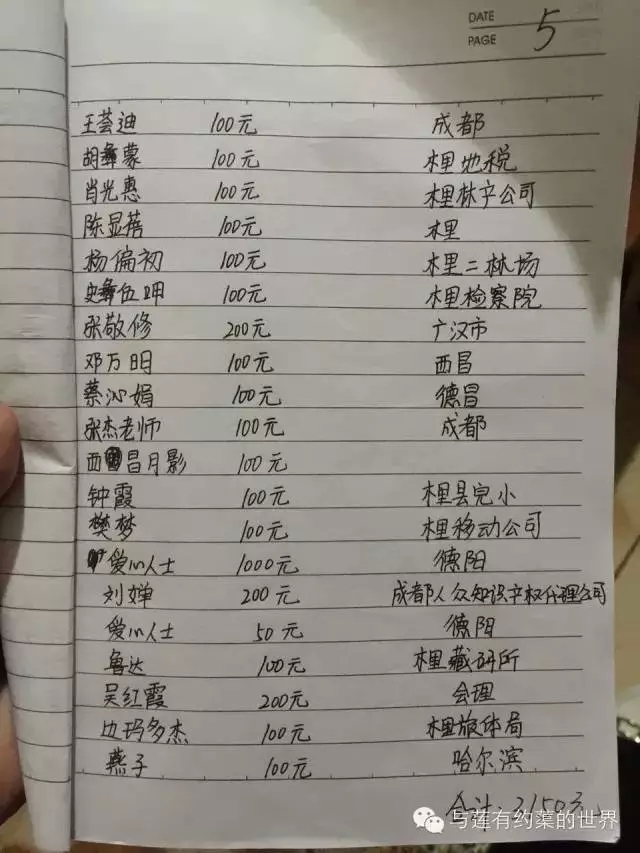 DATE
PAGE 5
王荟迪 100元 成都
胡彝蒙 100元 木里地税
肖光惠 100元 木里林产公司
陈显蓓 100元 木里
杨偏初 100元 木里二林场
史彝伍呷 100元 木里检察院
张敬修 200元 广汉市
邓万明 100元 西昌
蔡沁娟 100元 德昌
张杰老师 100元 成都
西昌月影 100元
钟霞 100元 木里县完小
樊梦 100元 木里移动公司
爱心人士 1000元 德阳
刘婵 200元 成都人众知识产权代理公司
爱心人士 50元 德阳
鲁达 100元 木里藏研所
吴红霞 200元 会理
边玛多杰 100元 木里旅体局
燕子 100元 哈尔滨
合计:
与莲有约藥的世界